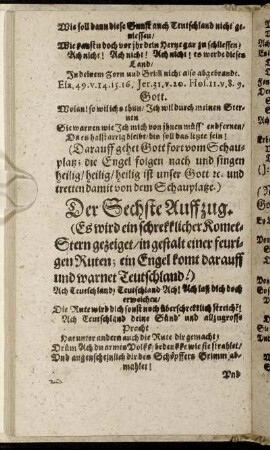 Wie soll dann diese Gunst auch Teutschland nicht ge-
niessen/
Wie kanstu doch vor ihr dein Hertze gar zu schliessen?
Ach nicht! Ach nicht! Ach nicht! es werde dieses
Land/
In deinem Zorn und Grim̃ nicht also abgebrandt.
Esa, 49. v. 14. 15. 16. Jer. 31. v. 20. Hos. 11. v. 8. 9.
Gott.
Wolan! so wil ichs thun/ Ich will durch meinen Ster-
nen
Sie warnen wie Ich mich von ihnen müss' entfernen/
Da es halsstarrig bleibt diß soll das letzte sein!
(Darauff gehet Gott fort vom Schau-
platz; die Engel folgen nach und singen
heilig/ heilig/ heilig ist unser Gott ꝛc. und
tretten damit von dem Schauplatze.)
Der Sechste Auffzug.
(Es wird ein schrekklicher Komet-
Stern gezeiget/ in gestalt einer feuri-
gen Ruten; ein Engel komt darauff
und warnet Teutschland!)
Ach Teutschland; Teutschland Ach! Ach laß dich doch
erweichen/
Die Rute wird dich sonst noch überschrecklich streichẽ!
Ach Teutschland deine Sünd' und allzugrosse
Pracht
Hat unter andern auch die Rute dir gemacht;
Drüm Ach du armes Volk; bedenke/ wie sie strahlet/
Und augenscheinlich dir den Schöpffers Grimm ab-
mahlet!
Und